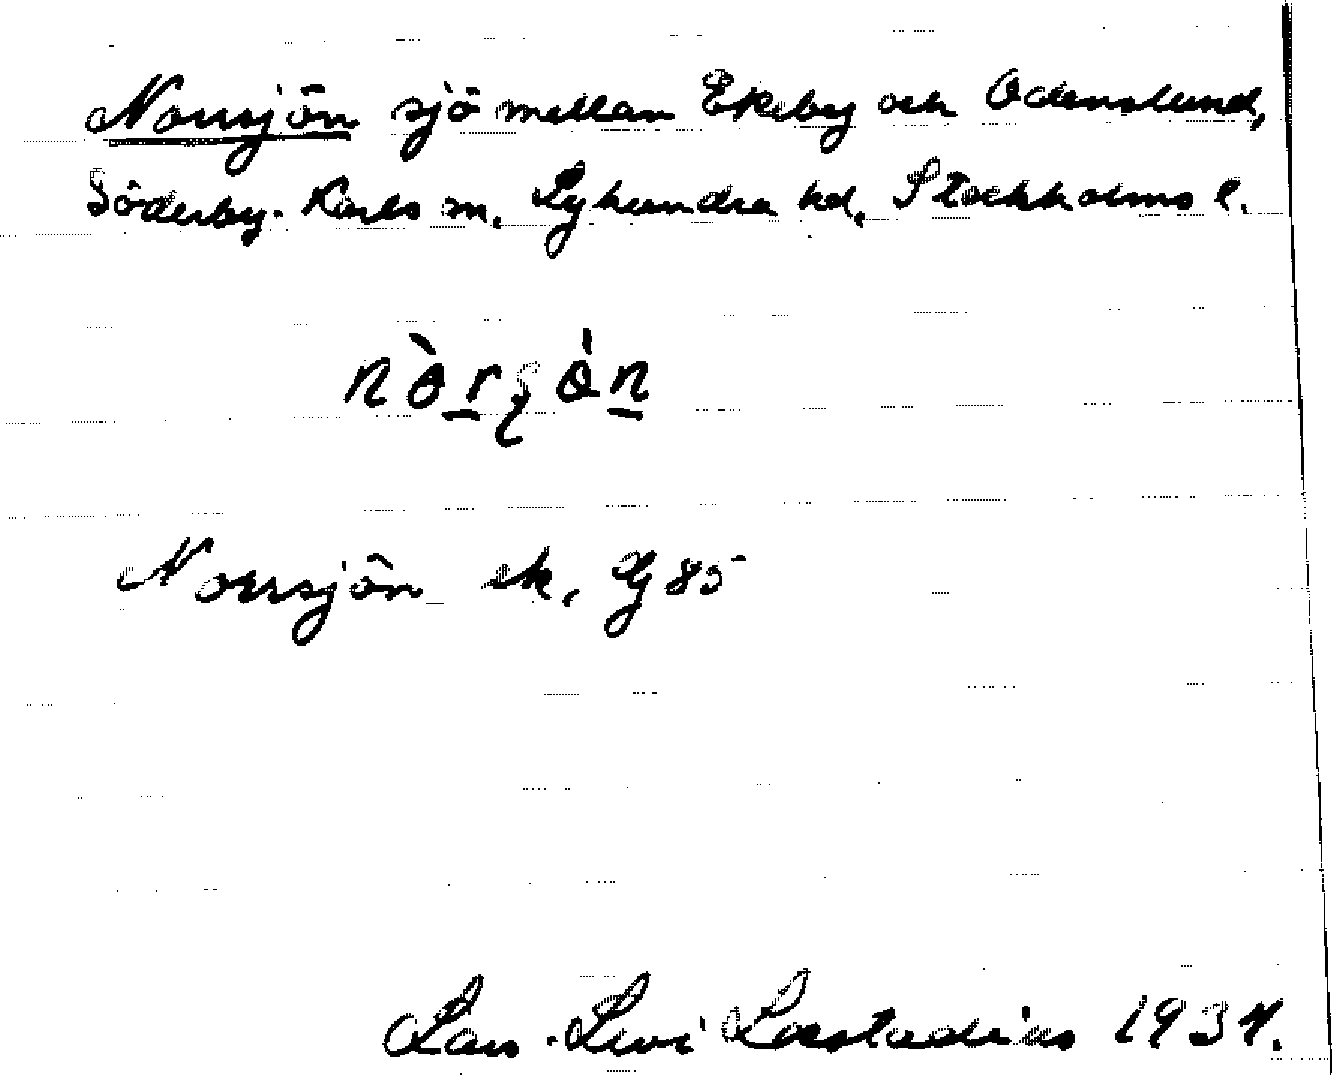 Norrsjön sjö mellan Ekeby och Odenslund,
Söderby-Karls sn, Lyhundra hd, Stockholms l.
Norrsjön ek. 85
Lars-Levi Læstadius 1934.